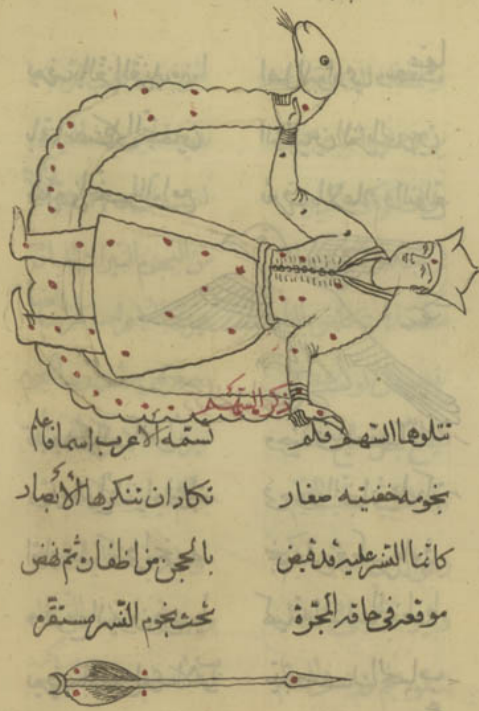 ذكر السهم
تتلوها السهم فلم تسمه الأعرب اسما فاعلم
نجومه خفيته صغار تكاد ان تنكرها الأبصار
كأنما النسر عليه قد قبض بالحجن من اظفاره ثم نهض
موقعه في حافة المجرة تحت نجوم النسر مستقره